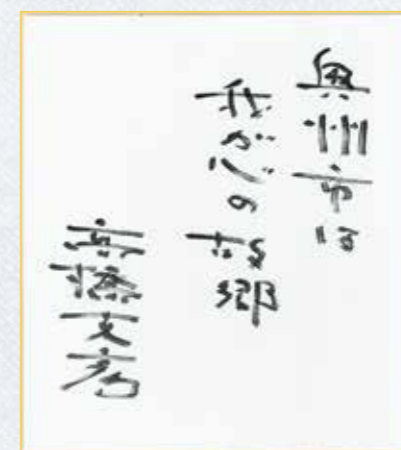 奥州市は
我が心の故郷
高橋文彦